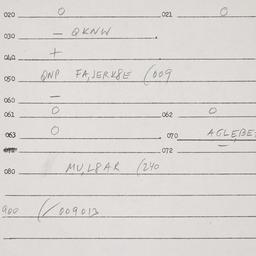 020 0 021 0
030 - QKNW .
040 +
050 QNP FA,JERK8E (009
060 -
061 0 062 0
063 0 070 AGLE,BE
072 -
080 MU,L8AR (240
900 (/ 009013